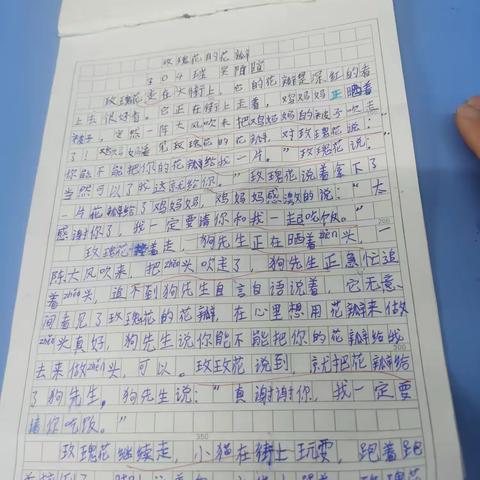 玫瑰花的花瓣
304班
玫瑰花走在大街上，它的花瓣是深红的看
上去很好看。它正在街上走着，鸡妈妈正晒着
被子，突然一阵大风吹来把鸡妈妈的被子吹走
了！鸡妈妈看见玫瑰花的花瓣，对玫瑰花说：“
你能不能把你的花瓣给我一片。”玫瑰花说：“
当然可以了呀这就给你。”玫瑰花说着拿下了
一片花瓣给了鸡妈妈，鸡妈妈感激的说：“太
感谢你了，我一定要请你和我一起吃饭。”
200
玫瑰花接着走，狗先生正在晒着zhěn头，一
阵大风吹来，把zhěn头吹走了，狗先生正急忙追
着zhěn头，追不到狗先生自言自语说着，它无意
间看见了玫瑰花的花瓣，在心里想用花瓣来做
zhěn头真好，狗先生说你能不能把你的花瓣给我
300
去来做zhěn头，可以。玫玫花说到，就把花瓣给
了狗先生，狗先生说：“真谢谢你，我一定要
请你吃饭。”
350
玫瑰花继续走，小猫在街上玩耍，跑着跑